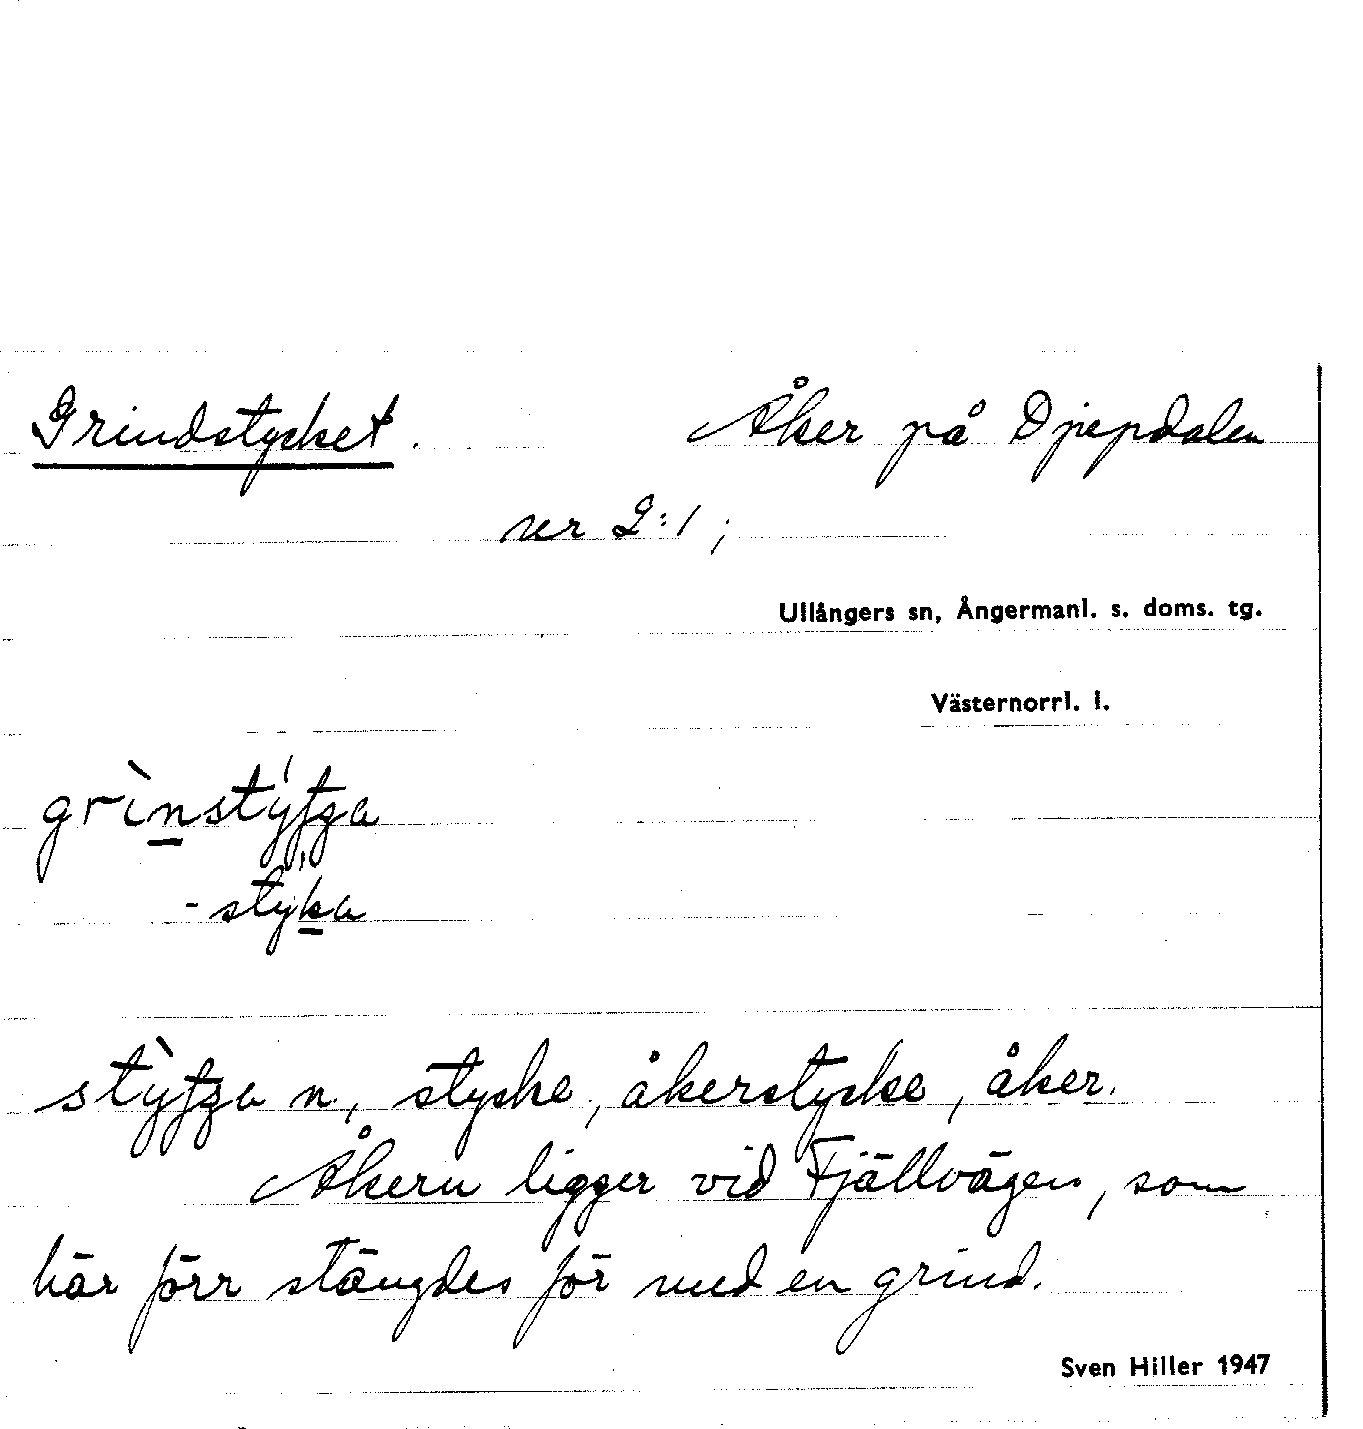 Grindstycket. Åker på Djupdalen
ner 2:1;
Ullångers sn, Ångermanl. s. doms. tg.
Västernorrl. l.
-styka
n, stycke, åkerstycke, åker.
Åkern ligger vid Fjällvägen, som
här förr stängdes för med en grind.
Sven Hiller 1947